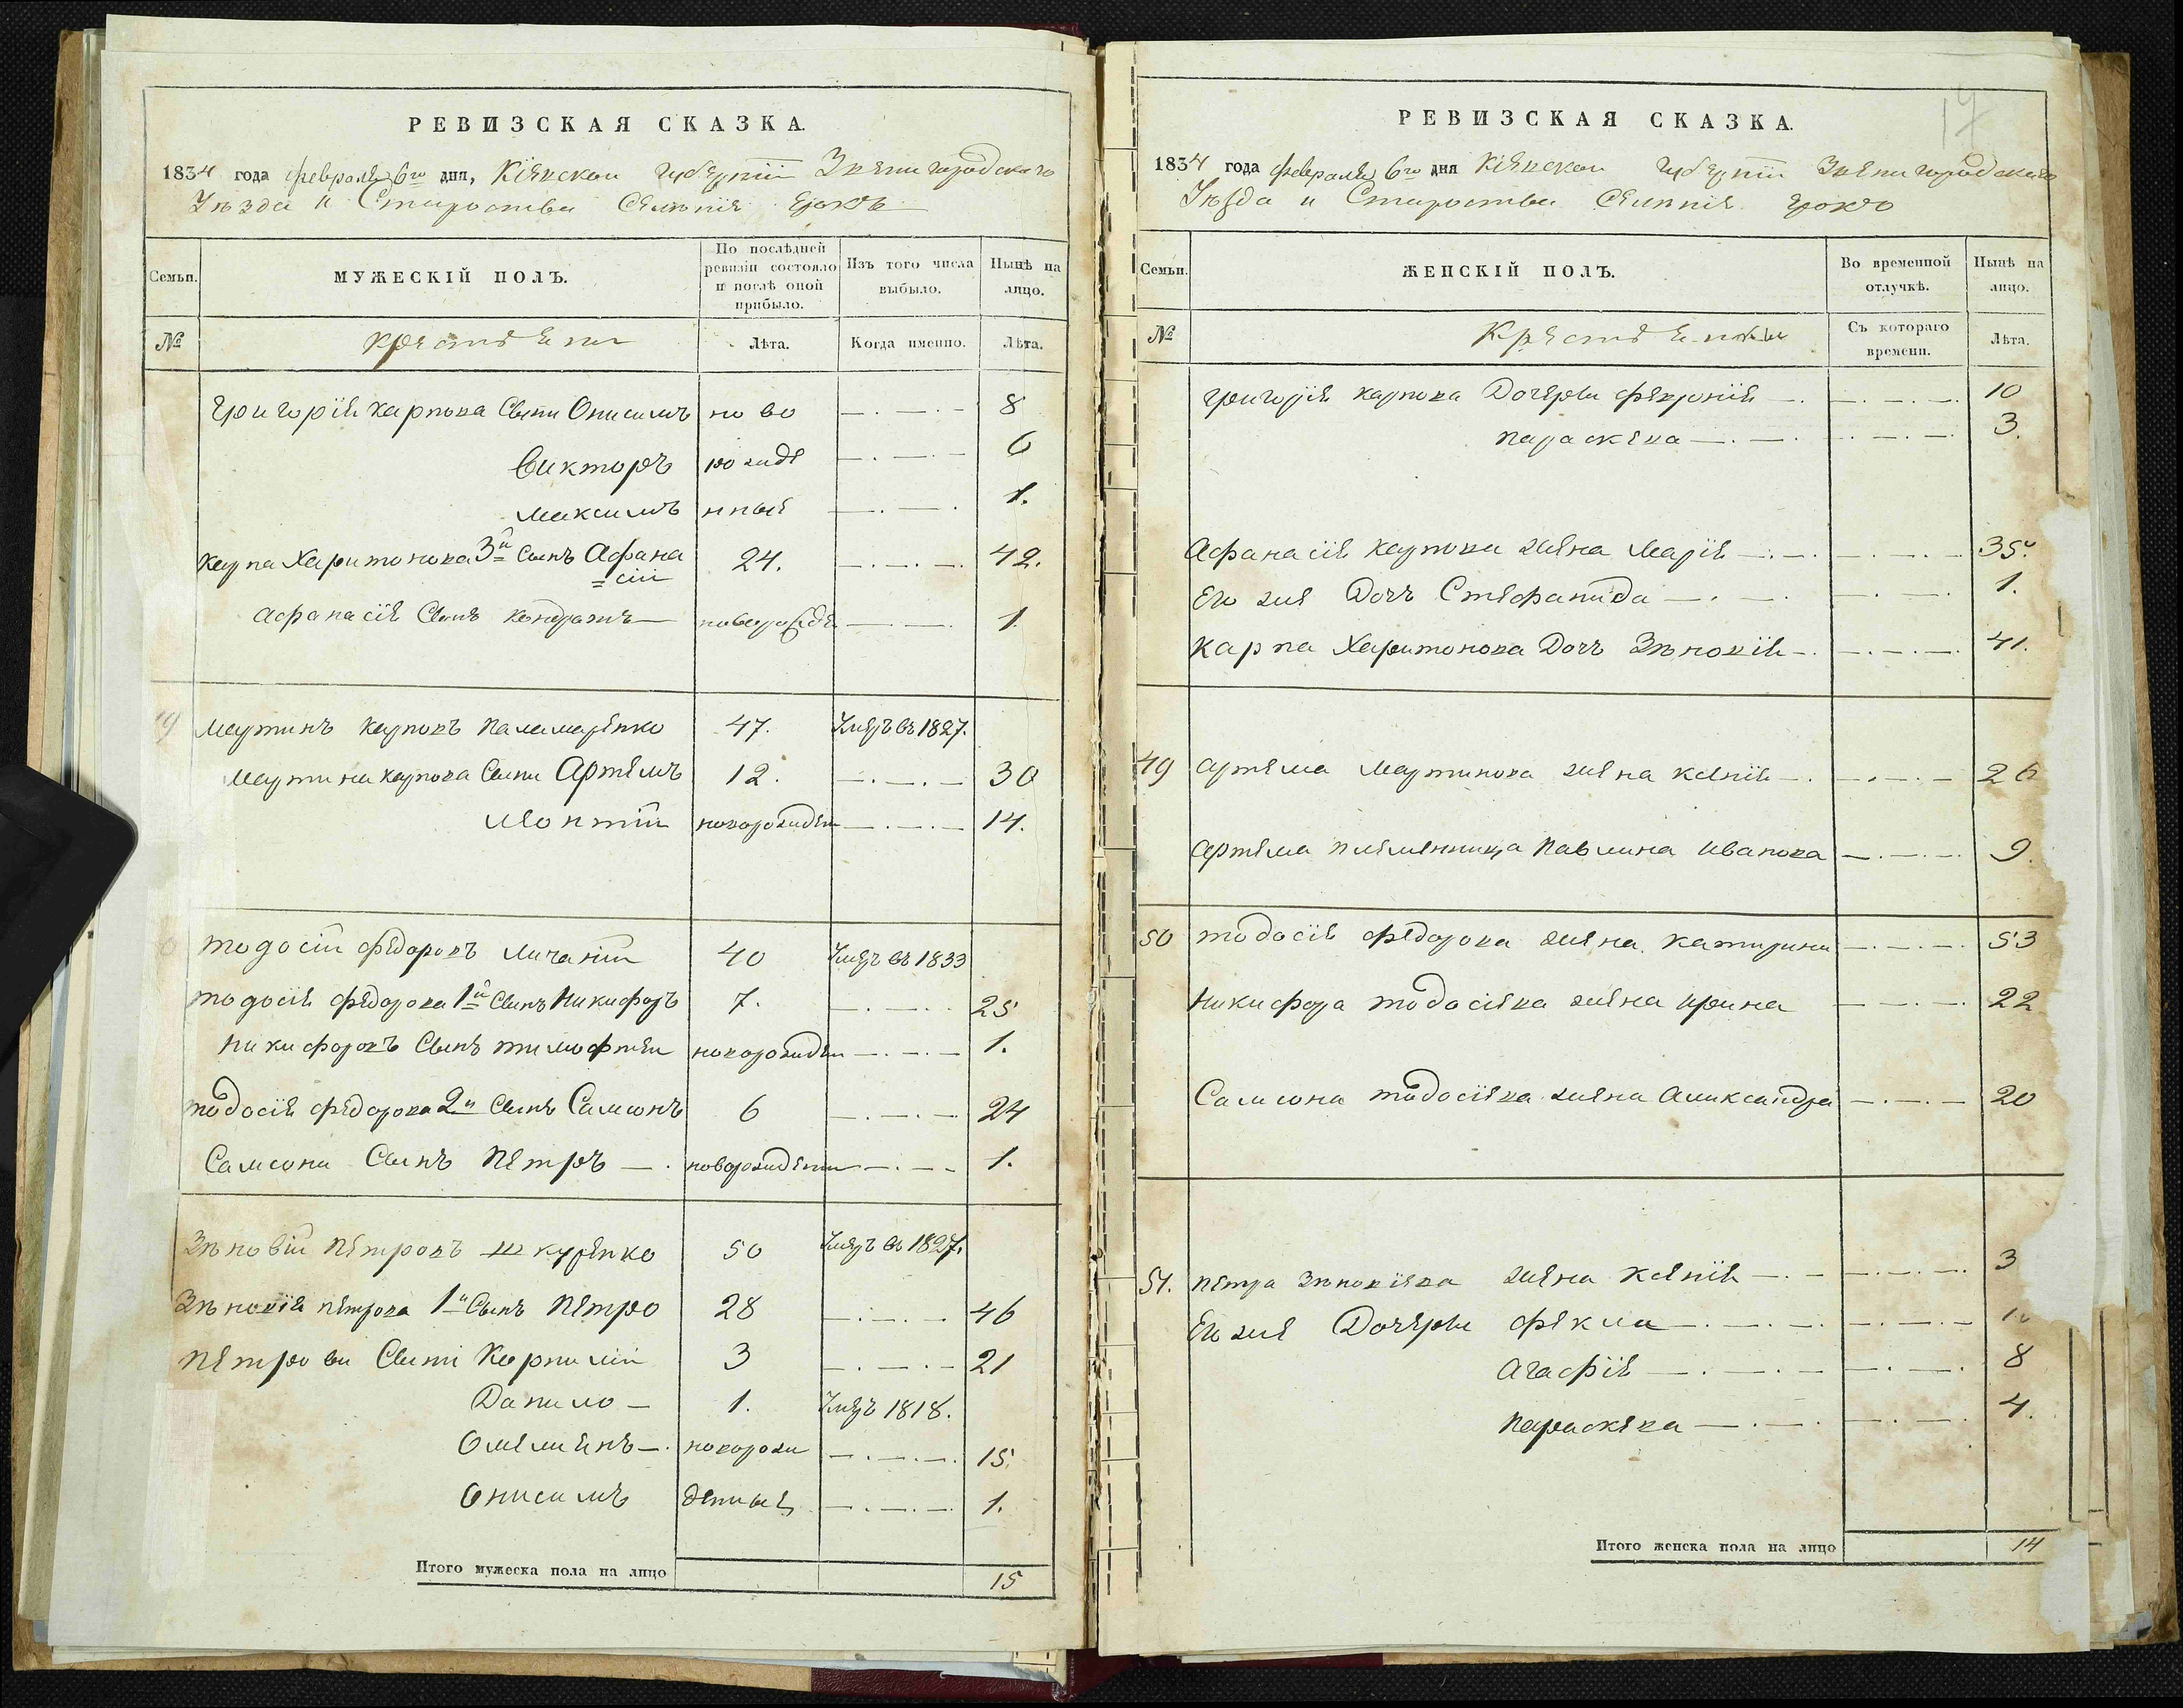 РЕВИЗСКАЯ СКАЗКА.
1834 года февраля 6го дня, Кіевской Губерніи Звенигородскаго
Уѣзда и Староства Селѣнія
Семьи. МУЖЕСКІЙ ПОЛЪ. По послѣдней ревизіи состояло и послѣ оной прибыло. Изъ того числа выбыло. Нынѣ на лицо.
№ Крестьѣни Лѣта. Когда именно. Лѣта.
Григорія карпова Сыни Онисимъ ново 8
Викторъ рожде 6
Максимъ нныя 1.
Карпа Харитонова 3й Сынъ Афана
=сій 24. 42.
Афанасія Сынъ Кондратъ новорожде 1
Мартинъ Карповъ Паламаренко 47. Умеръ въ 1827.
Мартина карпова Сыни Артемъ 12. 30
Леонтій новорожден 14.
Тодосій Федоровъ 40 Умеръ въ 1833
Тодосія Федорова 1й Сынъ Никифоръ 7. 25
Никифоровъ Сынъ Тимофтей новорожден 1.
Тодосія Федорова 2й Сынъ Самсонъ 6 24
Самсона Сынъ Петръ новорожденн 1.
Зѣновій Петровъ Шкуренко 50 Умеръ въ 1827.
Зѣновія Петрова 1й Сынъ Петро 28 46
Петрови Сыни Корнилій 3 21
Данило 1. Умеръ 1818.
Омелянъ новорож 15.
Онисимъ денныя 1.
Итого мужеска пола на лицо 15
17
РЕВИЗСКАЯ СКАЗКА.
1834 года февраля 6го дня Кіевской Губерніи Звенигородскаго
Уѣзда и Староства Селѣнія
Семьи. ЖЕНСКІЙ ПОЛЪ. Во временной отлучкѣ. Нынѣ на лицо.
№ Крестьѣнки Съ котораго времени. Лѣта.
Григорія Карпова Дочери Февронія 10
Параскева 3.
Афанасія Карпова жена Марія 35.
Его же Дочъ Стефанида 1.
Карпа Харитонова Дочъ Зѣновія 41.
49 Артема Мартинова жена Ксенія 26
Артема племенница Павлина Иванова 9.
50 Тодосія Федорова жена Катирина 53
Никифора Тодосіева жена Ирина 22
Самсона Тодосіева жена Александра 20
51. Петра Зѣновіева жена Ксенія 3
Его же Дочери Фекла
Агафія 8
Параскева 4.
Итого женска пола на лицо 14